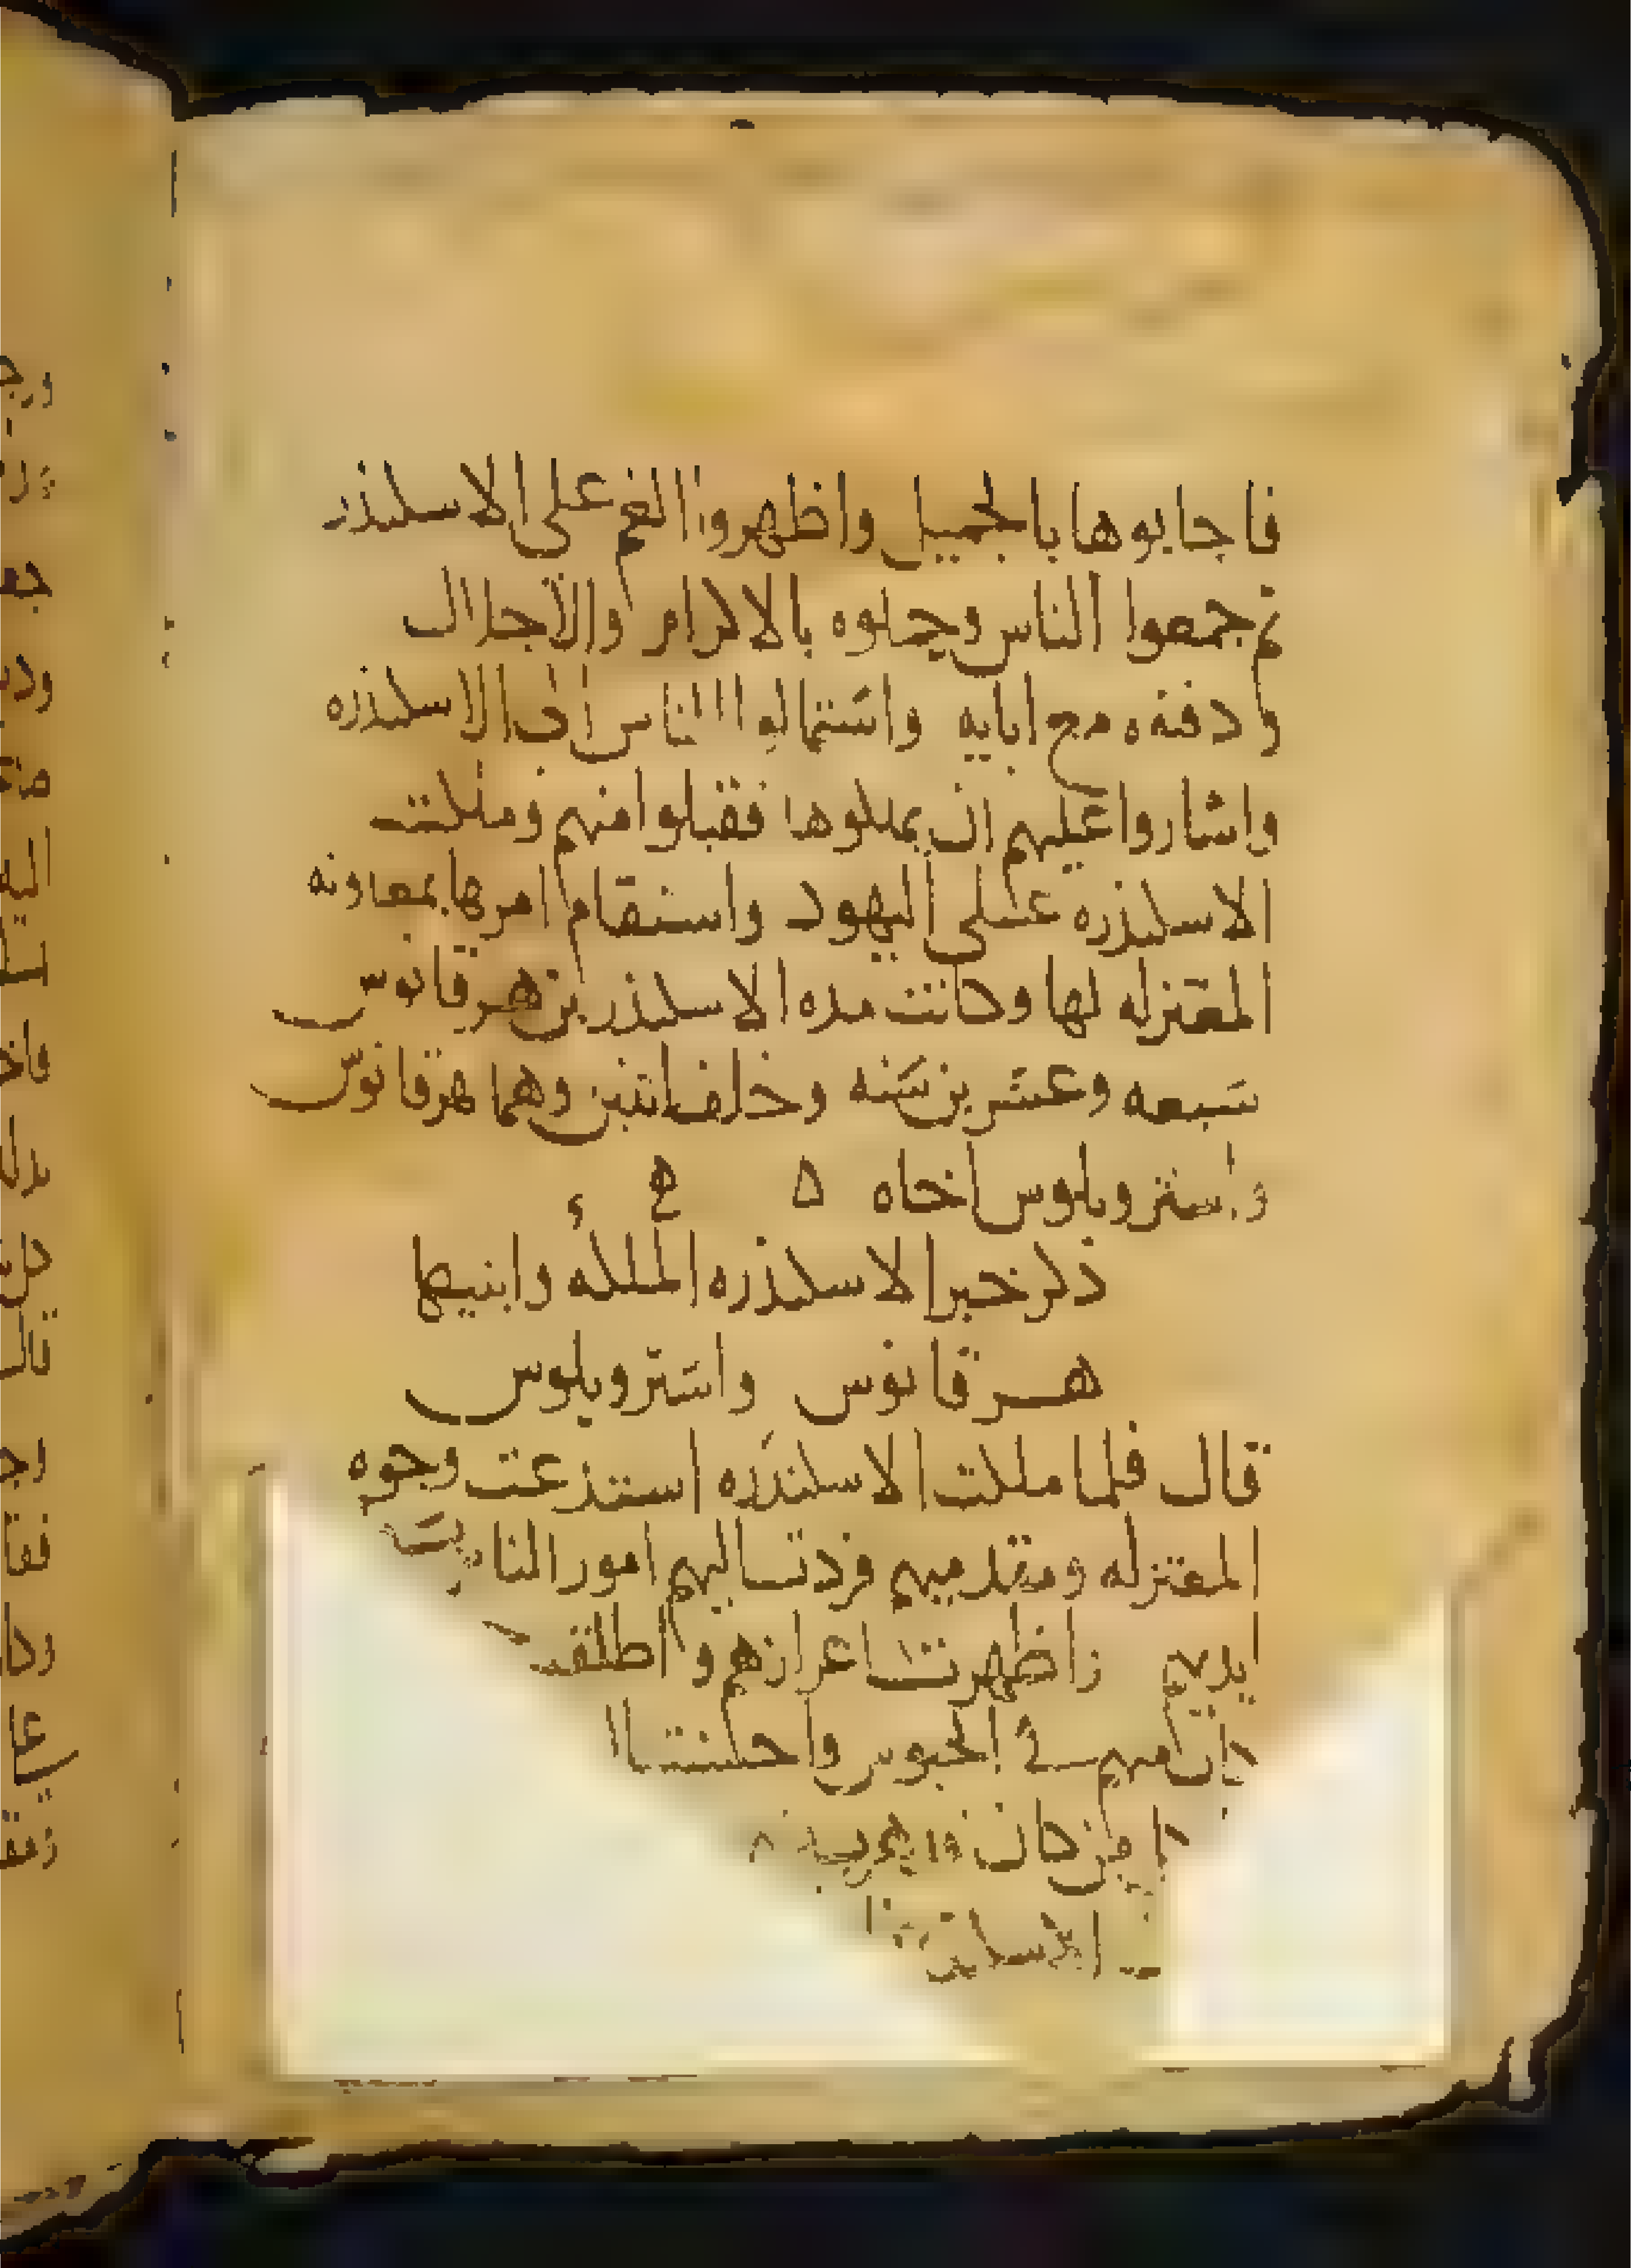 فاجابوها بالجميل واظهروا الغم على الاسكندر
ثم جمعوا الناس وحملوه بالاكرام والاجلال
ودفنوه مع ابايه واستمالوا الناس الى الاسكندره
واشاروا عليهم ان يملكوها فقبلوا منهم وملكت
الاسكندره على اليهود واستقام امرها بمعاونه
المعتزله لها وكانت مده الاسكندر بن هرقانوس
سبعه وعشرين سنه وخلف ابنين وهما هرقانوس
واستروبلوس اخاه
ذكر خبر الاسكندره الملكه وابنيها
هرقانوس واستروبلوس
قال فلما ملكت الاسكندره استدعت وجوه
المعتزله ومقدميهم فردت اليهم امور الناس
ايديهم واظهرت اعزازهم واطلقت
كان منهم في الحبوس واحسنت ا
من كان